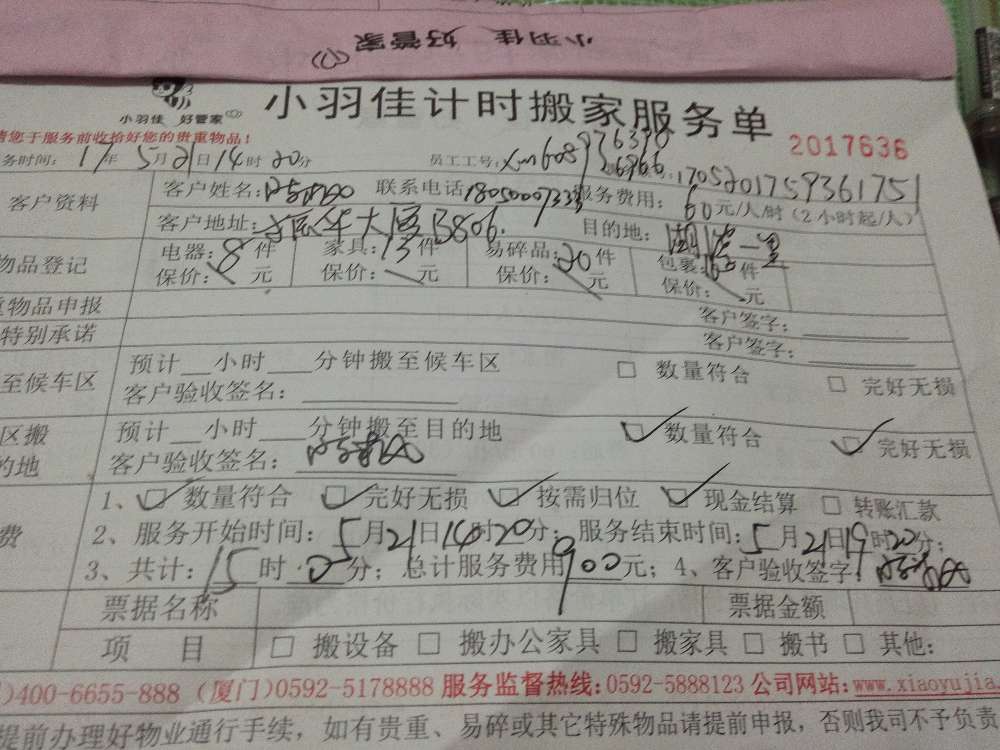 小羽佳 好管家
小羽佳 好管家
小羽佳计时搬家服务单
2017636
请您于服务前收拾好您的贵重物品!
务时间: 17年 5月21日14时20分 员工工号: xm608 976390
客户资料 客户姓名: 联系电话 服务费用: 60元/人/时 (2小时起/人)
1705201759361751
客户地址: 大厦B806. 目的地: 一里
物品登记 电器: 8件 家具: 13件 易碎品: 20件 包裹: 件
保价: 元 保价: 元 保价: 元 保价: 元
物品申报 客户签字:
特别承诺 客户签字:
至候车区 预计 小时 分钟搬至候车区 □ 数量符合 □ 完好无损
客户验收签名:
区搬 预计 小时 分钟搬至目的地 ☑ 数量符合 ☑ 完好无损
的地 客户验收签名:
费 1、☑ 数量符合 ☑ 完好无损 ☑ 按需归位 ☑ 现金结算 □ 转账汇款
2、服务开始时间: 5月21日14时20分; 服务结束时间: 5月21日19时20分;
3、共计: 15时 0分; 总计服务费用 900元; 4、客户验收签字:
票据名称 票据金额
项 目 □ 搬设备 □ 搬办公家具 □ 搬家具 □ 搬书 □ 其他:
)400-6655-888 (厦门)0592-5178888 服务监督热线:0592-5888123 公司网站:www.xiaoyujia.
提前办理好物业通行手续, 如有贵重、易碎或其它特殊物品请提前申报, 否则我司不予负责